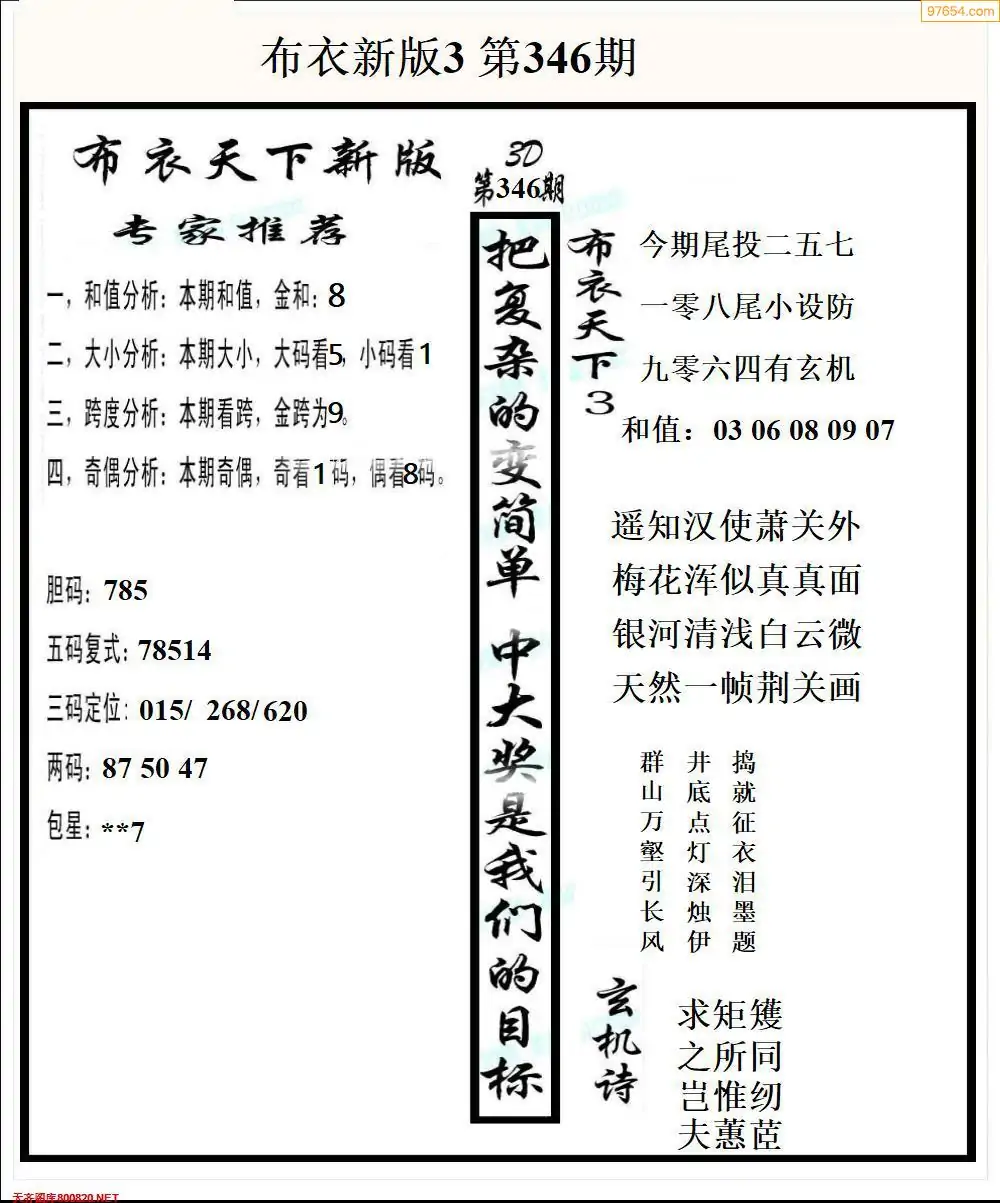 97654.com
布衣新版3 第346期
布衣天下新版
专家推荐
一，和值分析：本期和值，金和：8
二，大小分析：本期大小，大码看5，小码看1
三，跨度分析：本期看跨，金跨为9。
四，奇偶分析：本期奇偶，奇看1码，偶看8码。
胆码：785
五码复式：78514
三码定位：015/ 268/620
两码：87 50 47
包星：**7
3D
第346期
把复杂的变简单 中大奖是我们的目标
布衣天下3
今期尾投二五七
一零八尾小设防
九零六四有玄机
和值：03 06 08 09 07
遥知汉使萧关外
梅花浑似真真面
银河清浅白云微
天然一帧荆关画
捣就征衣泪墨题
井底点灯深烛伊
群山万壑引长风
玄机诗
求矩矱
之所同
岂惟纫
夫蕙茝
天齐图库800820.NET